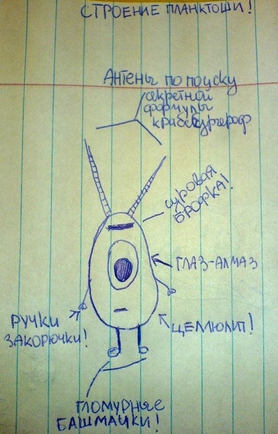 СТРОЕНИЕ ПЛАНКТОШИ!
Антены по поиску
секретной
формулы
крабсбургеров
СУРОВАЯ
БРОФКА!
ГЛАЗ-АЛМАЗ
РУЧКИ
ЗАКОРЮЧКИ!
ЦЕЛЛЮЛИТ!
ГЛОМУРНЫЕ
БАШМАЧКИ!